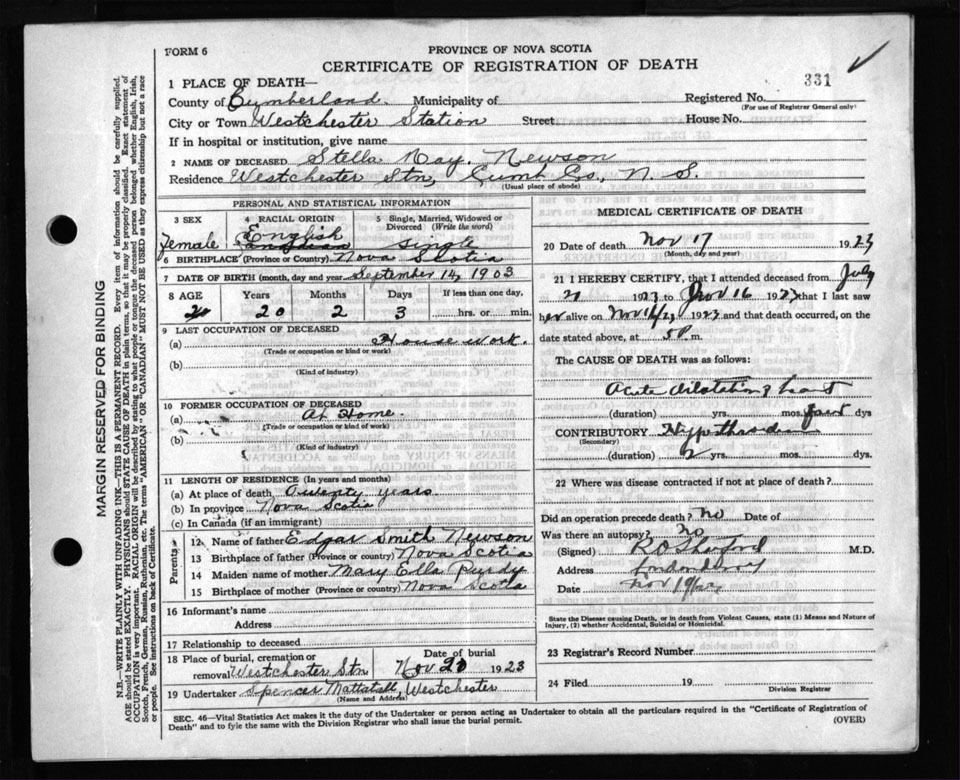 FORM 6
PROVINCE OF NOVA SCOTIA
CERTIFICATE OF REGISTRATION OF DEATH
331
1 PLACE OF DEATH—
County of Cumberland. Municipality of
Registered No.
(For use of Registrar General only)
City or Town Westchester Station Street
House No.
If in hospital or institution, give name
2 NAME OF DECEASED Stella May. Newson
Residence Westchester Stn, Cumb Co., N. S.
(Usual place of abode)
PERSONAL AND STATISTICAL INFORMATION
3 SEX
Female
4 RACIAL ORIGIN
English
Canadian
5 Single, Married, Widowed or Divorced (Write the word)
single
6 BIRTHPLACE (Province or Country) Nova Scotia
7 DATE OF BIRTH (month, day and year) September 14, 1903
8 AGE Years Months Days If less than one day,
20 2 3 hrs. or min.
9 LAST OCCUPATION OF DECEASED
(a) House work.
(Trade or occupation or kind of work)
(b)
(Kind of industry)
10 FORMER OCCUPATION OF DECEASED
(a) At Home.
(Trade or occupation or kind of work)
(b)
(Kind of industry)
11 LENGTH OF RESIDENCE (In years and months)
(a) At place of death twenty years
(b) In province Nova Scotia
(c) In Canada (if an immigrant)
Parents
12 Name of father Edgar Smith Newson
13 Birthplace of father (Province or country) Nova Scotia
14 Maiden name of mother Mary Ella Purdy
15 Birthplace of mother (Province or country) Nova Scotia
16 Informant's name
Address
17 Relationship to deceased
18 Place of burial, cremation or removal Westchester Stn
Date of burial
Nov 20 1923
19 Undertaker Spencer Mattatall, Westchester
(Name and Address)
MEDICAL CERTIFICATE OF DEATH
20 Date of death Nov 17 1923
(Month, day and year)
21 I HEREBY CERTIFY, that I attended deceased from July
2 1923 to Nov 16 1923 that I last saw
her alive on Nov 16/23 1923 and that death occurred, on
date stated above, at 5 P. m.
The CAUSE OF DEATH was as follows:
Acute dilatation of heart
(duration) yrs. mos. four dys
CONTRIBUTORY
(Secondary)
(duration) 2 yrs. mos. dys.
22 Where was disease contracted if not at place of death?
Did an operation precede death? no Date of
Was there an autopsy? No
(Signed) M.D.
Address Londonderry
Date Nov 19/23
State the Disease causing Death, or in death from Violent Causes, state (1) Means and Nature of
Injury, (2) whether Accidental, Suicidal or Homicidal.
23 Registrar's Record Number
24 Filed 19
Division Registrar
SEC. 46—Vital Statistics Act makes it the duty of the Undertaker or person acting as Undertaker to obtain all the particulars required in the "Certificate of Registration of
Death" and to fyle the same with the Division Registrar who shall issue the burial permit.
(OVER)
MARGIN RESERVED FOR BINDING
N.B.—WRITE PLAINLY WITH UNFADING INK—THIS IS A PERMANENT RECORD. Every item of information should be carefully supplied.
AGE should be stated EXACTLY. PHYSICIANS should STATE CAUSE OF DEATH in plain terms, so that it may be properly classified. Exact statement of
OCCUPATION is very important. RACIAL ORIGIN will be described by stating to what people or tongue the deceased person belonged whether English, Irish,
Scotch, French, German, Russian, Ruthenian, etc. The terms "AMERICAN" OR "CANADIAN" MUST NOT BE USED as they express citizenship but not a race
or people. See instructions on back of Certificate.